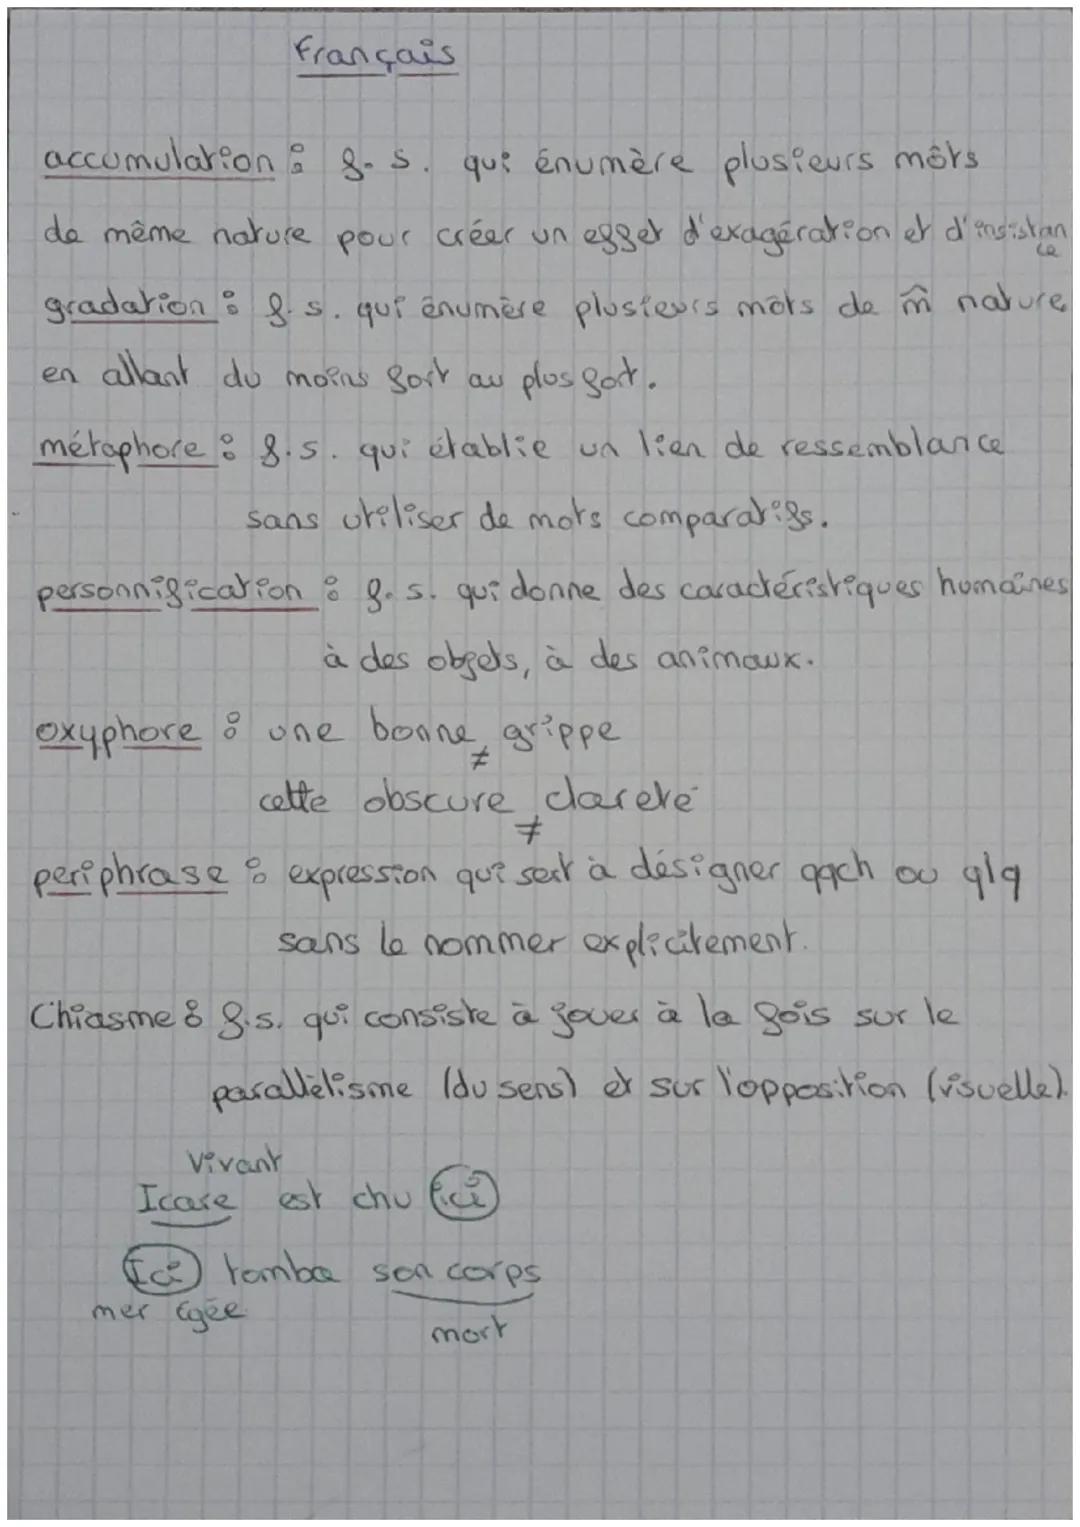 Français
accumulation : f. s. qui énumère plusieurs môts
de même nature pour créer un effet d'exagération et d'insistan
ce
gradation : f. s. qui énumère plusieurs môts de m̂ nature
en allant du moins fort au plus fort.
métaphore : f. s. qui établie un lien de ressemblance
sans utiliser de mots comparatifs.
personnification : f. s. qui donne des caractéristiques humaines
à des objets, à des animaux.
oxyphore : une bonne grippe
≠
cette obscure clareté
≠
periphrase : expression qui sert à désigner qqch ou qlq
sans le nommer explicitement.
Chiasme : f. s. qui consiste à jouer à la fois sur le
parallélisme (du sens) et sur l'opposition (visuelle).
Vivant
Icare est chu ici
Ici tomba son corps
mer Egée
mort